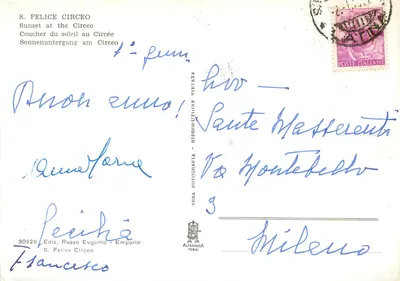 S. FELICE CIRCEO
Sunset at the Circeo
Coucher du soleil au Circée
Sonnenuntergang am Circeo
1ª genn
Buon anno!
Anna Maria
Cecilia
Francesco
30929 Ediz. Russo Eugenio - Emporio
S. Felice Circeo
VERA FOTOGRAFIA - RIPRODUZIONE VIETATA
ALTEROCCA
TERNI
POSTE ITALIANE
Sante Masserenti
Via Montebello
9
Milano